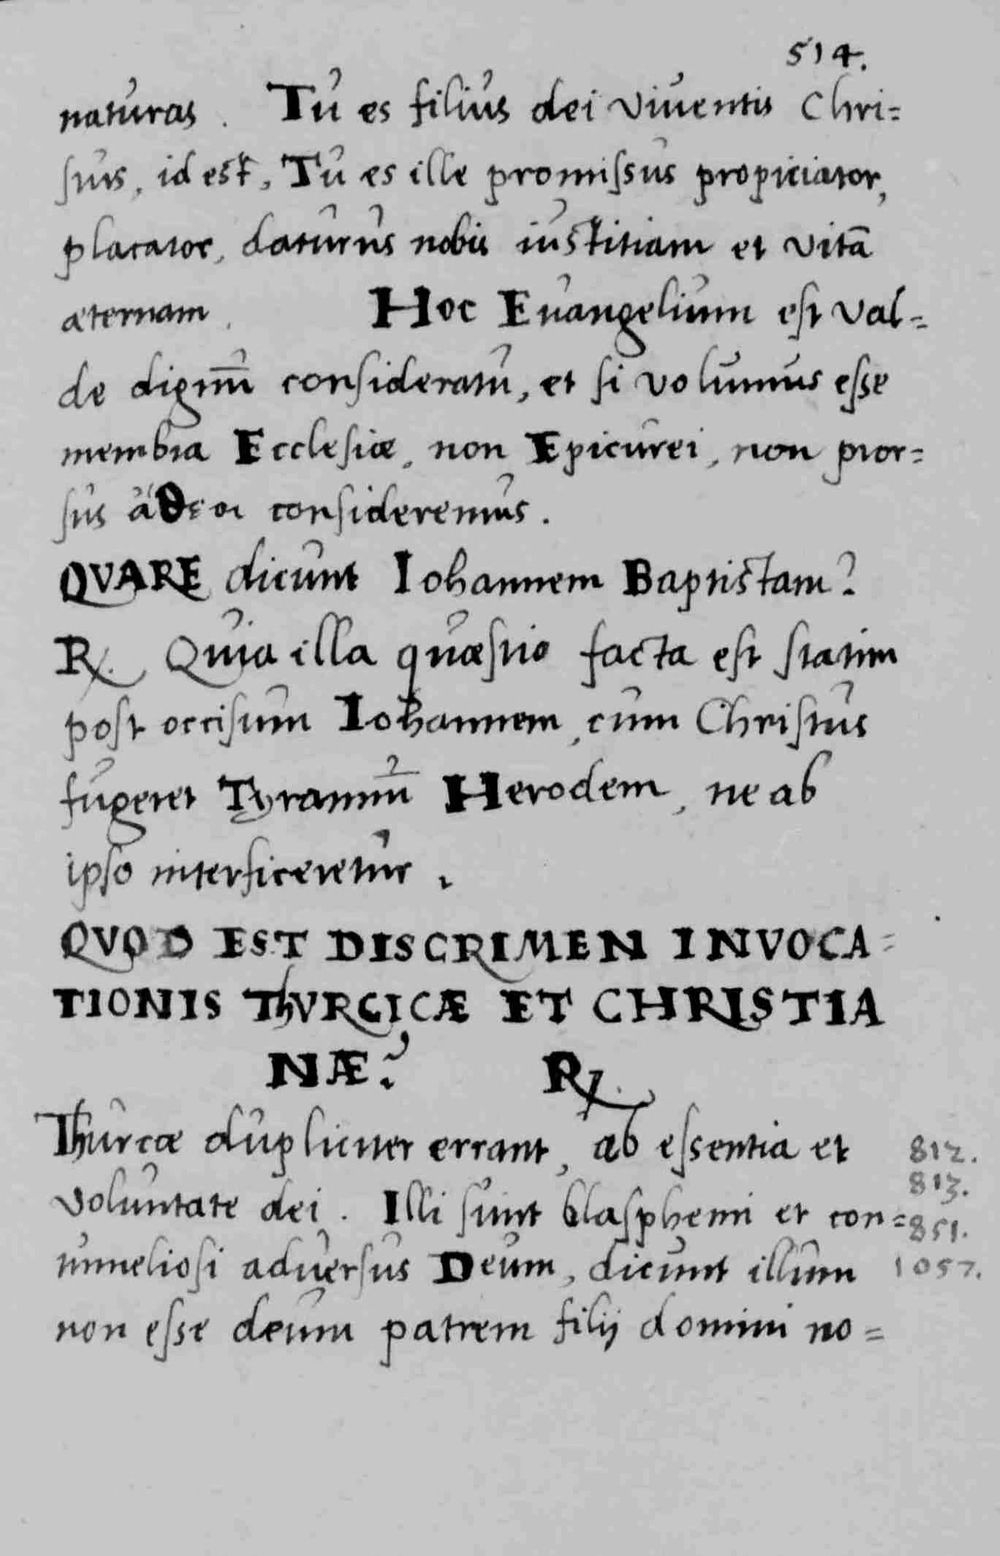 514.
naturas. Tu es filius dei viventis Chri=
stus, id est, Tu es ille promissus propiciator,
placator, daturus nobis iustitiam et vitā
æternam. Hoc Euangelium est val=
de dignū consideratu, et si volumus esse
membra Ecclesiæ, non Epicurei, non pror=
sus ἄθεοι consideremus.
QVARE dicunt Iohannem Baptistam?
℞. Quia illa quæstio facta est statim
post occisum Iohannem, cum Christus
fugeret Tyrannū Herodem, ne ab
ipso interficeretur.
QVOD EST DISCRIMEN INVOCA=
TIONIS ThVRCICÆ ET CHRISTIA
NÆ? ℞.
Thurcæ dupliciter errant, ab essentia et
812.
813.
voluntate dei. Illi sunt blasphemi et con=
851.
tumeliosi adversus Deum, dicunt illum
1057.
non esse deum patrem filij domini no=